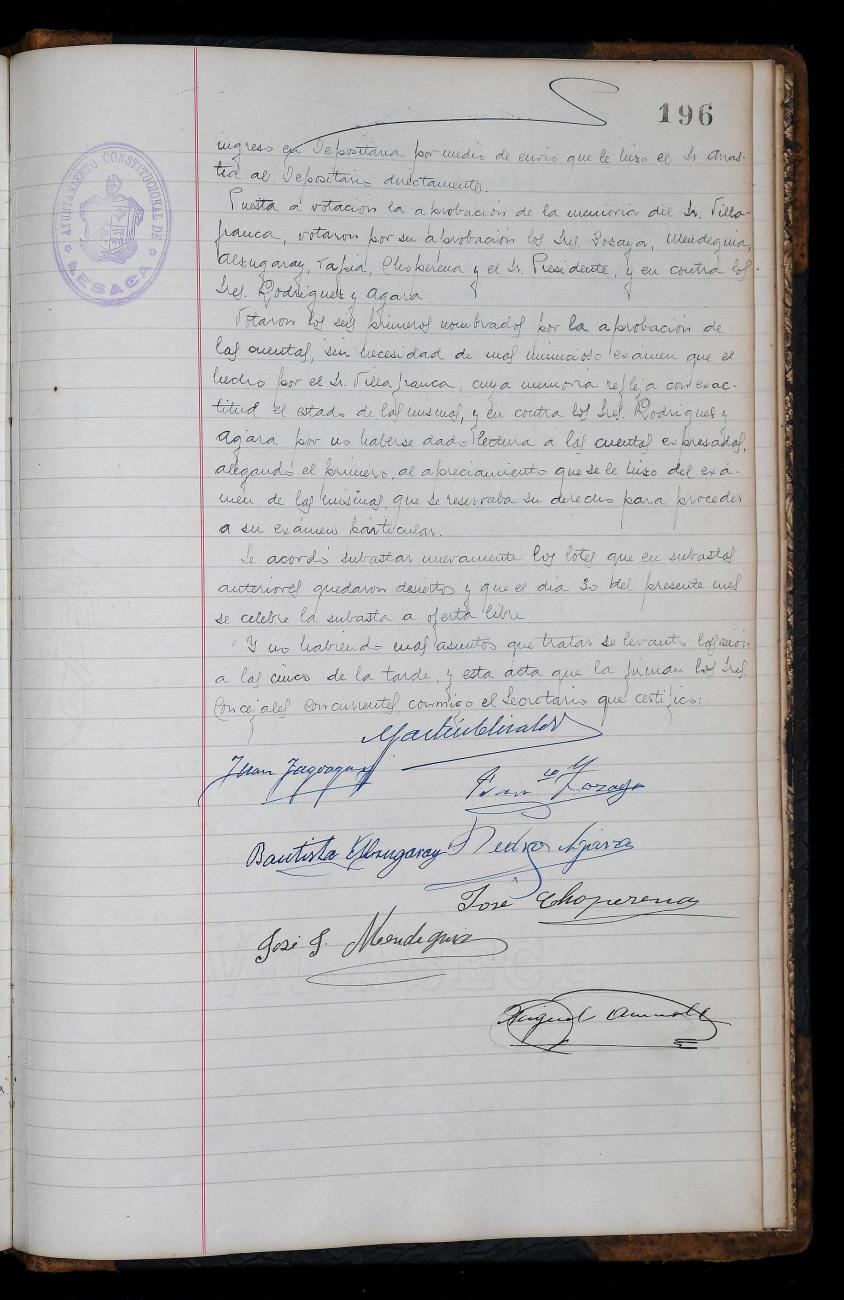 196
AYUNTAMIENTO CONSTITUCIONAL DE
LESACA
ingreso en Depositaria por medio de envio que le hizo el Sr. Anas-
tia al Depositario directamente.
Puesta á votacion la aprobación de la memoria del Sr. Villa-
franca, votaron por su aprobación los Sres. Zozaya, Mendeguia,
Alzugaray, Tapia, Choperena y el Sr. Presidente, y en contra los
Sres. Rodriguez y Agara.
Votaron los seis primeros nombrados por la aprobación de
las cuentas, sin necesidad de mas minucioso exámen que el
hecho por el Sr. Villafranca, cuya memoria refleja con exac-
titud el estado de las mismas, y en contra los Sres. Rodriguez y
Agara por no haberse dado lectura a las cuentas expresadas,
alegando el primero, al apreciamiento que se le hizo del exá-
men de las mismas, que se reservaba su derecho para proceder
a su exámen particular.
Se acordó subastar nuevamente los lotes que en subastas
anteriores quedaron desiertos y que el dia 30 del presente mes
se celebre la subasta a oferta libre.
Y no habiendo mas asuntos que tratar se levantó la sesion
á las cinco de la tarde, y esta acta que la firman los Sres.
Concejales concurrentes conmigo el Secretario que certifico:
Juan
Franco Zozaya
Bautista Alzugaray
Pedro
José Choperena
José J. Mendeguia
Miguel